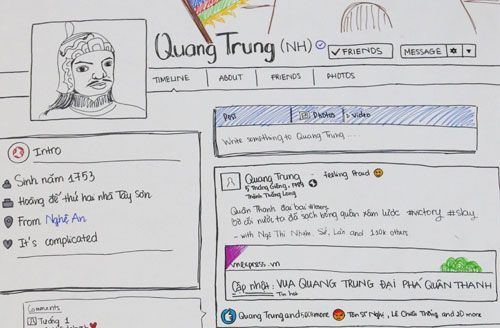 Quang Trung (NH)
✓ FRIENDS
MESSAGE
TIMELINE
ABOUT
FRIENDS
PHOTOS
Intro
Sinh năm 1753
Hoàng đế thứ hai nhà Tây Sơn
From Nghệ An
It's complicated
Comments
Tướng 1
Post
Photos
Video
Write something to Quang Trung ....
Quang Trung - feeling Proud
5 Tháng Giêng, 1789
Thành Thăng Long
Quân Thanh đại bại
bờ cõi nước ta đã sạch bóng quân xâm lược #victory #slay
- with Ngô Thì Nhậm, Sở, Lân and 130k others
vnexpress.vn
Cập nhật: VUA QUANG TRUNG ĐẠI PHÁ QUÂN THANH
Tin hot
Quang Trung and 500k more
Tôn Sĩ Nghị, Lê Chiêu Thống and 20 more